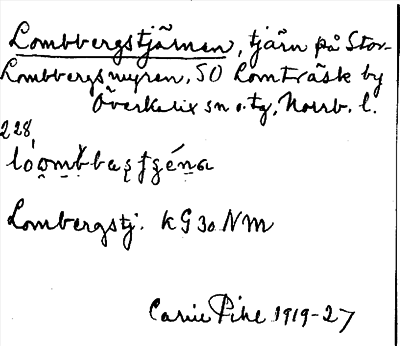 Lombbergstjärnen, tjärn på Stor-
Lombbergsmyren, SO Lomträsk by
Överkalix sn o. tg, Norrb. l.
228,
Lombergstj. KG 30 NM
Carrie Pihl 1919-27